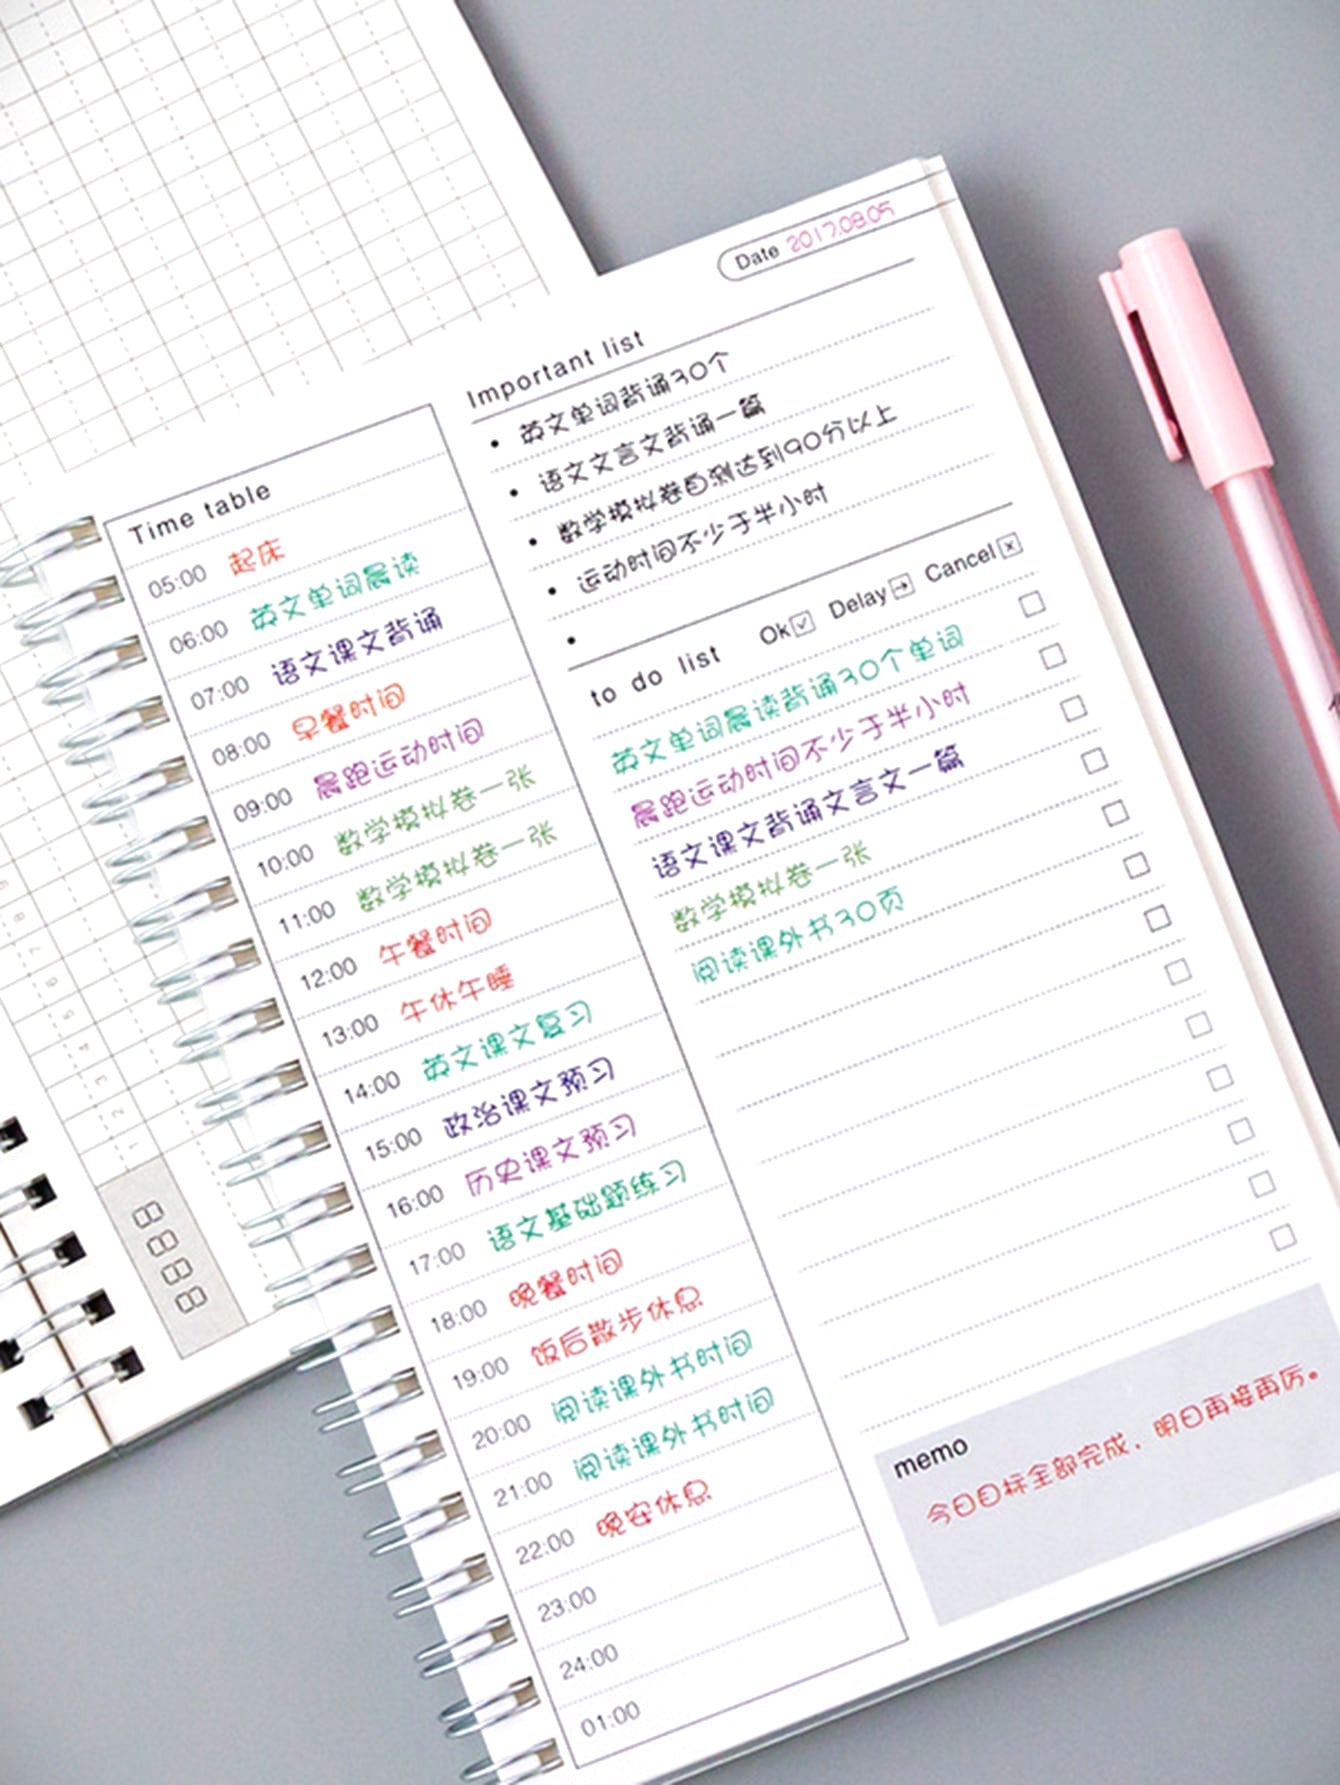 Date 2017.08.05
Important list
• 英文单词背诵30个
• 语文文言文背诵一篇
• 数学模拟卷自测达到90分以上
• 运动时间不少于半小时
•
to do list Ok Delay Cancel
英文单词晨读背诵30个单词
晨跑运动时间不少于半小时
语文课文背诵文言文一篇
数学模拟卷一张
阅读课外书30页
memo
今日目标全部完成，明日再接再厉。
Time table
05:00 起床
06:00 英文单词晨读
07:00 语文课文背诵
08:00 早餐时间
09:00 晨跑运动时间
10:00 数学模拟卷一张
11:00 数学模拟卷一张
12:00 午餐时间
13:00 午休午睡
14:00 英文课文复习
15:00 政治课文预习
16:00 历史课文预习
17:00 语文基础题练习
18:00 晚餐时间
19:00 饭后散步休息
20:00 阅读课外书时间
21:00 阅读课外书时间
22:00 晚安休息
23:00
24:00
01:00